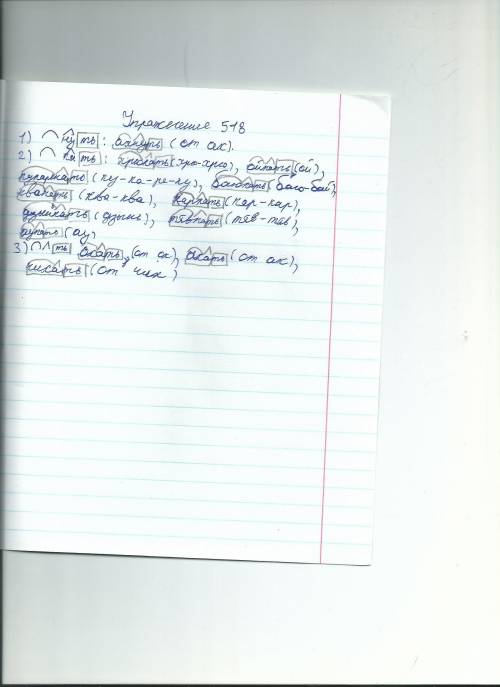 Упражнение 518
1) ну ть: ахнуть (от ах).
2) ка ть: хрюкать (хрю-хрю), ойкать (ой),
кукарекать (ку-ка-ре-ку), баюкать (баю-бай),
квакать (ква-ква), каркать (кар-кар),
дзинькать (дзынь), тявкать (тяв-тяв),
аукать (ау)
3) ть охать (от ох), ахать (от ах),
чихать (от чих)